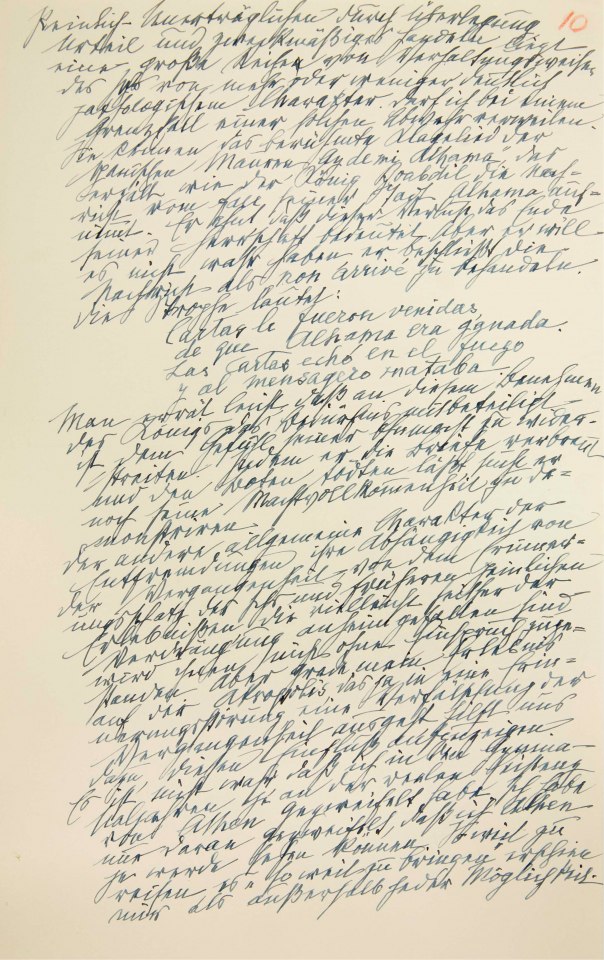 10
Peinlich-Unerträglichen durch Überlegung
Urteil und zweckmäßiges Handeln liegt
eine große Reihe von Verhaltungsweisen
des Ichs von mehr oder weniger deutlich
pathologischem Charakter. Darf ich bei einem
Grenzfall einer solchen Abwehr verweilen.
Sie kennen das berühmte Klagelied der
spanischen Mauren „Ay de mi Alhama", das
erzählt wie der König Boabdil die Nach=
richt vom Fall seiner Stadt Alhama auf=
nimmt. Er ahnt daß dieser Verlust das Ende
seiner Herrschaft bedeutet. Aber er will
es nicht „wahr haben", er beschließt die
Nachricht als „non arrivé" zu behandeln.
Die Strophe lautet:
Cartas le fueron venidas,
de que Alhama era ganada.
Las cartas echó en el fuego
y al mensagero mataba.
Man errät leicht, daß an diesem Benehmen
des Königs das Bedürfnis mitbeteiligt
ist dem Gefühl seiner Ohnmacht zu wider=
streiten. Indem er die Briefe verbrennt
und den Boten tödten läßt, sucht er
noch seine Machtvollkommenheit zu de=
monstriren.
Der andere allgemeine Charakter der
Entfremdungen, ihre Abhängigkeit von
der Vergangenheit, von dem Erinner=
ungsschatz des Ichs und früheren peinlichen
Erlebnissen die vielleicht seither der
Verdrängung anheimgefallen sind
wird ihnen nicht ohne Einspruch zuge=
standen. Aber grade mein Erlebnis
auf der Akropolis, das ja in eine Erin=
nerungsstörung, eine Verfälschung der
Vergangenheit ausgeht hilft uns
dazu diesen Einfluß aufzuzeigen.
Es ist nicht wahr daß ich in den Gymna=
sialjahren je an der realen Existenz
von Athen gezweifelt habe. Ich habe
nur daran gezweifelt, daß ich Athen
je werde sehen können. So weit zu
reisen, es „so weit zu bringen" erschien
mir als außerhalb jeder Möglichkeit.